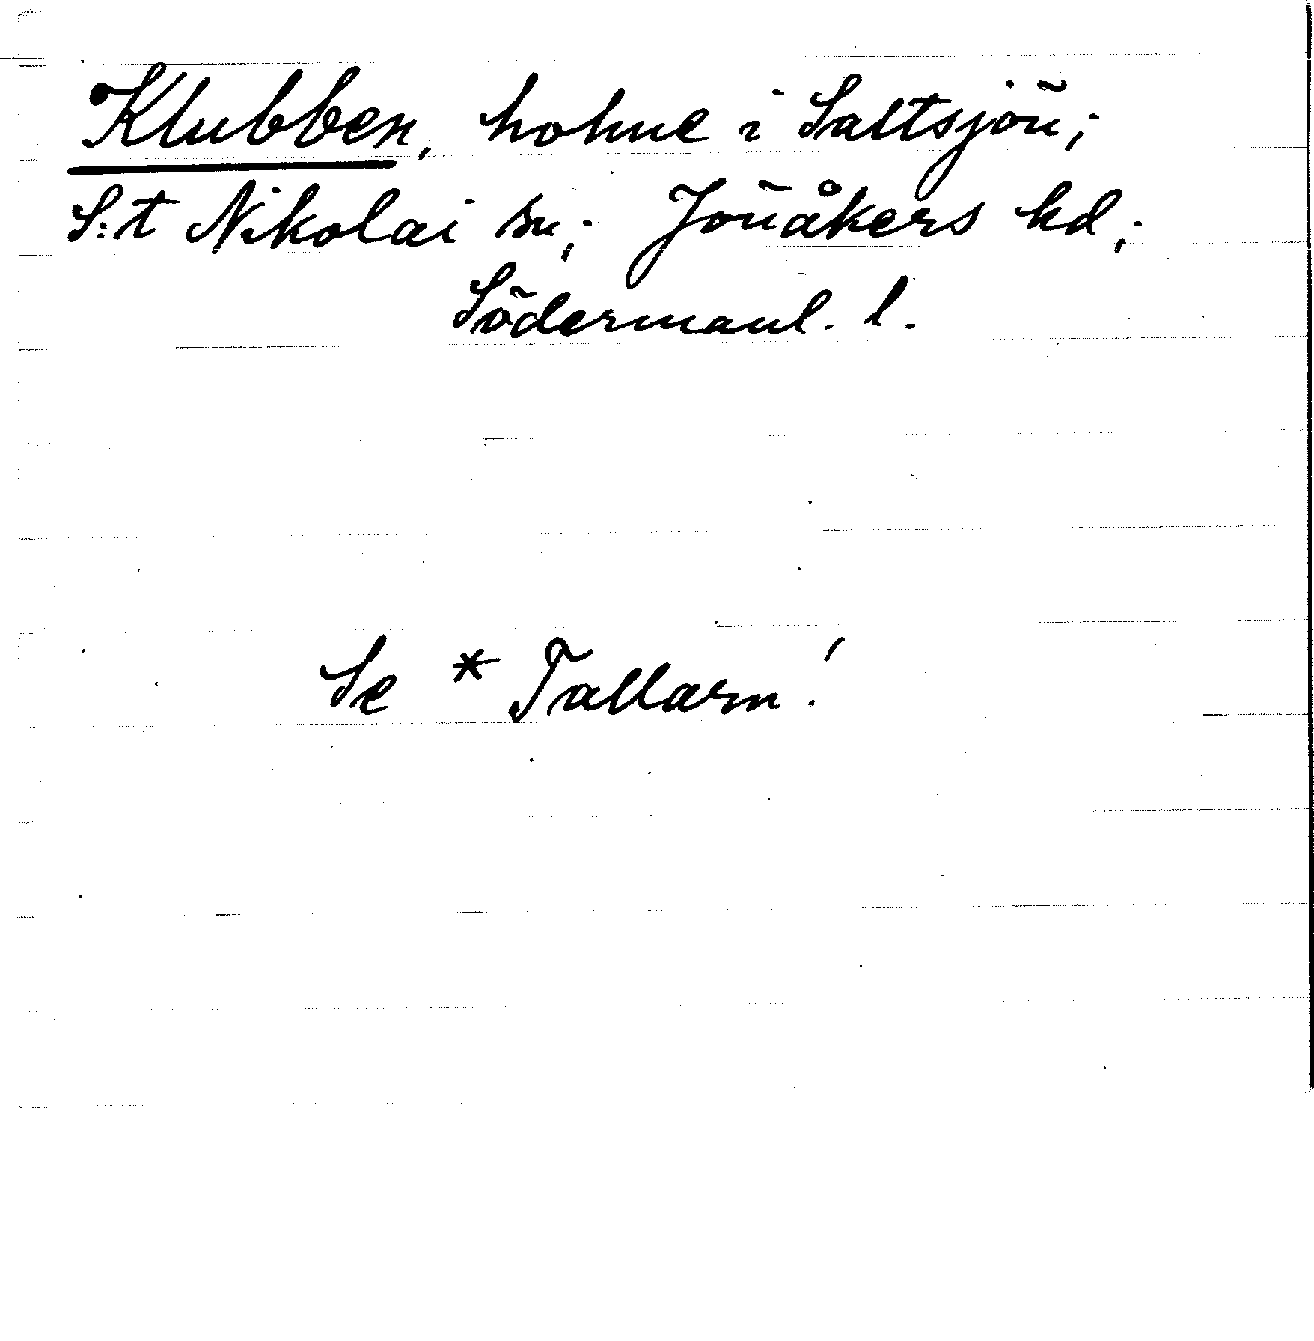 Klubben, holme i Saltsjön;
S:t Nikolai sn; Jönåkers hd;
Södermanl. l.
Se * Tallarm!